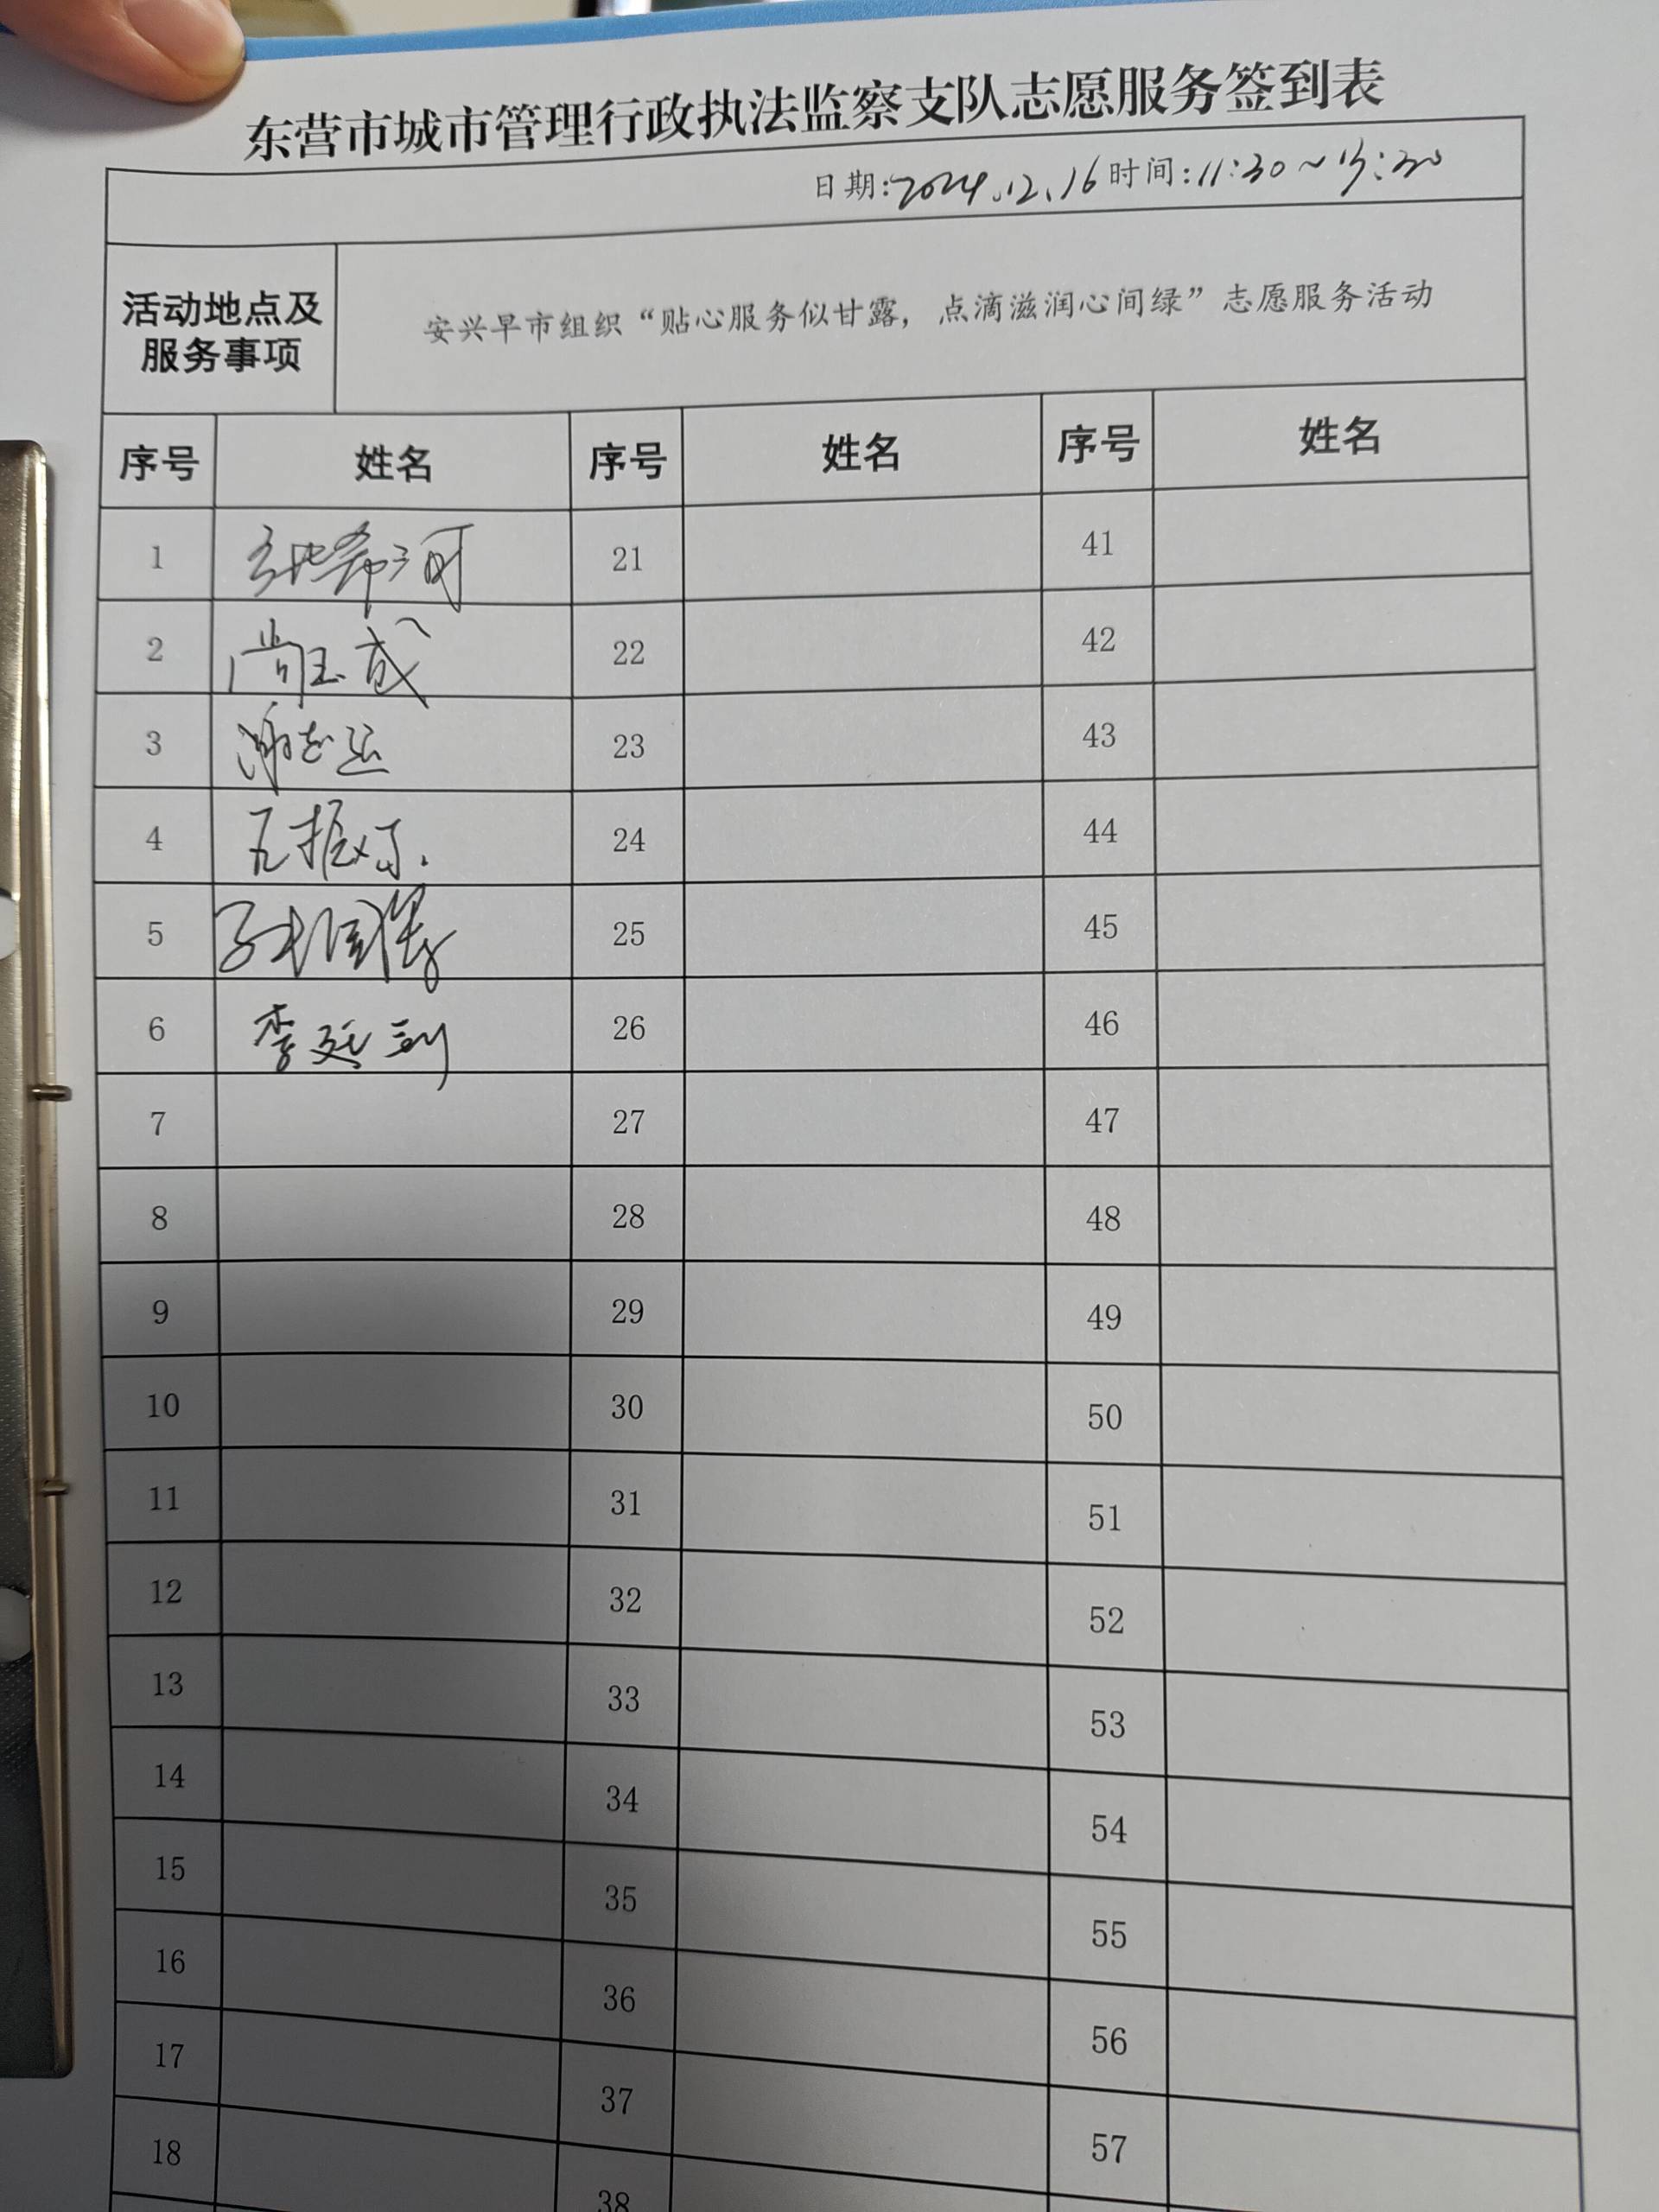 东营市城市管理行政执法监察支队志愿服务签到表
日期:2024.12.16 时间:11:30~13:30
活动地点及
服务事项
安兴早市组织“贴心服务似甘露，点滴滋润心间绿”志愿服务活动
序号 姓名 序号 姓名 序号 姓名
1 21 41
2 尚玉成 22 42
3 谢志远 23 43
4 24 44
5 孙国 25 45
6 李廷 26 46
7 27 47
8 28 48
9 29 49
10 30 50
11 31 51
12 32 52
13 33 53
14 34 54
15 35 55
16 36 56
17 37 57
18 38